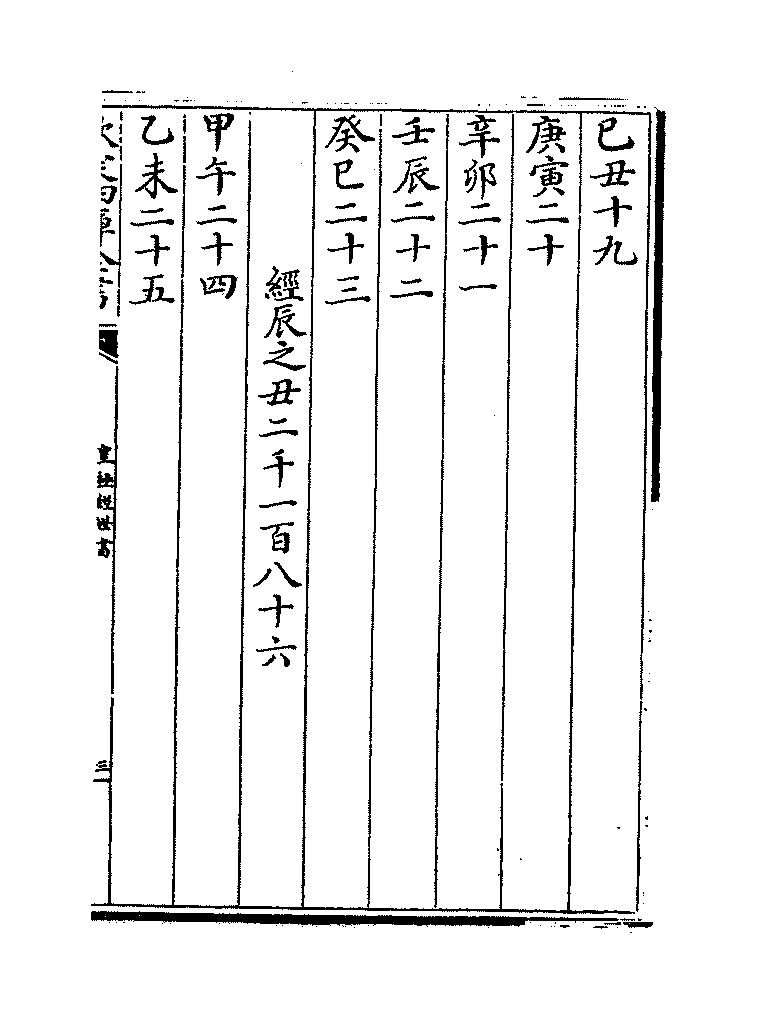 己丑十九
庚寅二十
辛卯二十一
壬辰二十二
癸巳二十三
經辰之丑二千一百八十六
甲午二十四
乙未二十五
欽定四庫全書
皇極經世書
三一